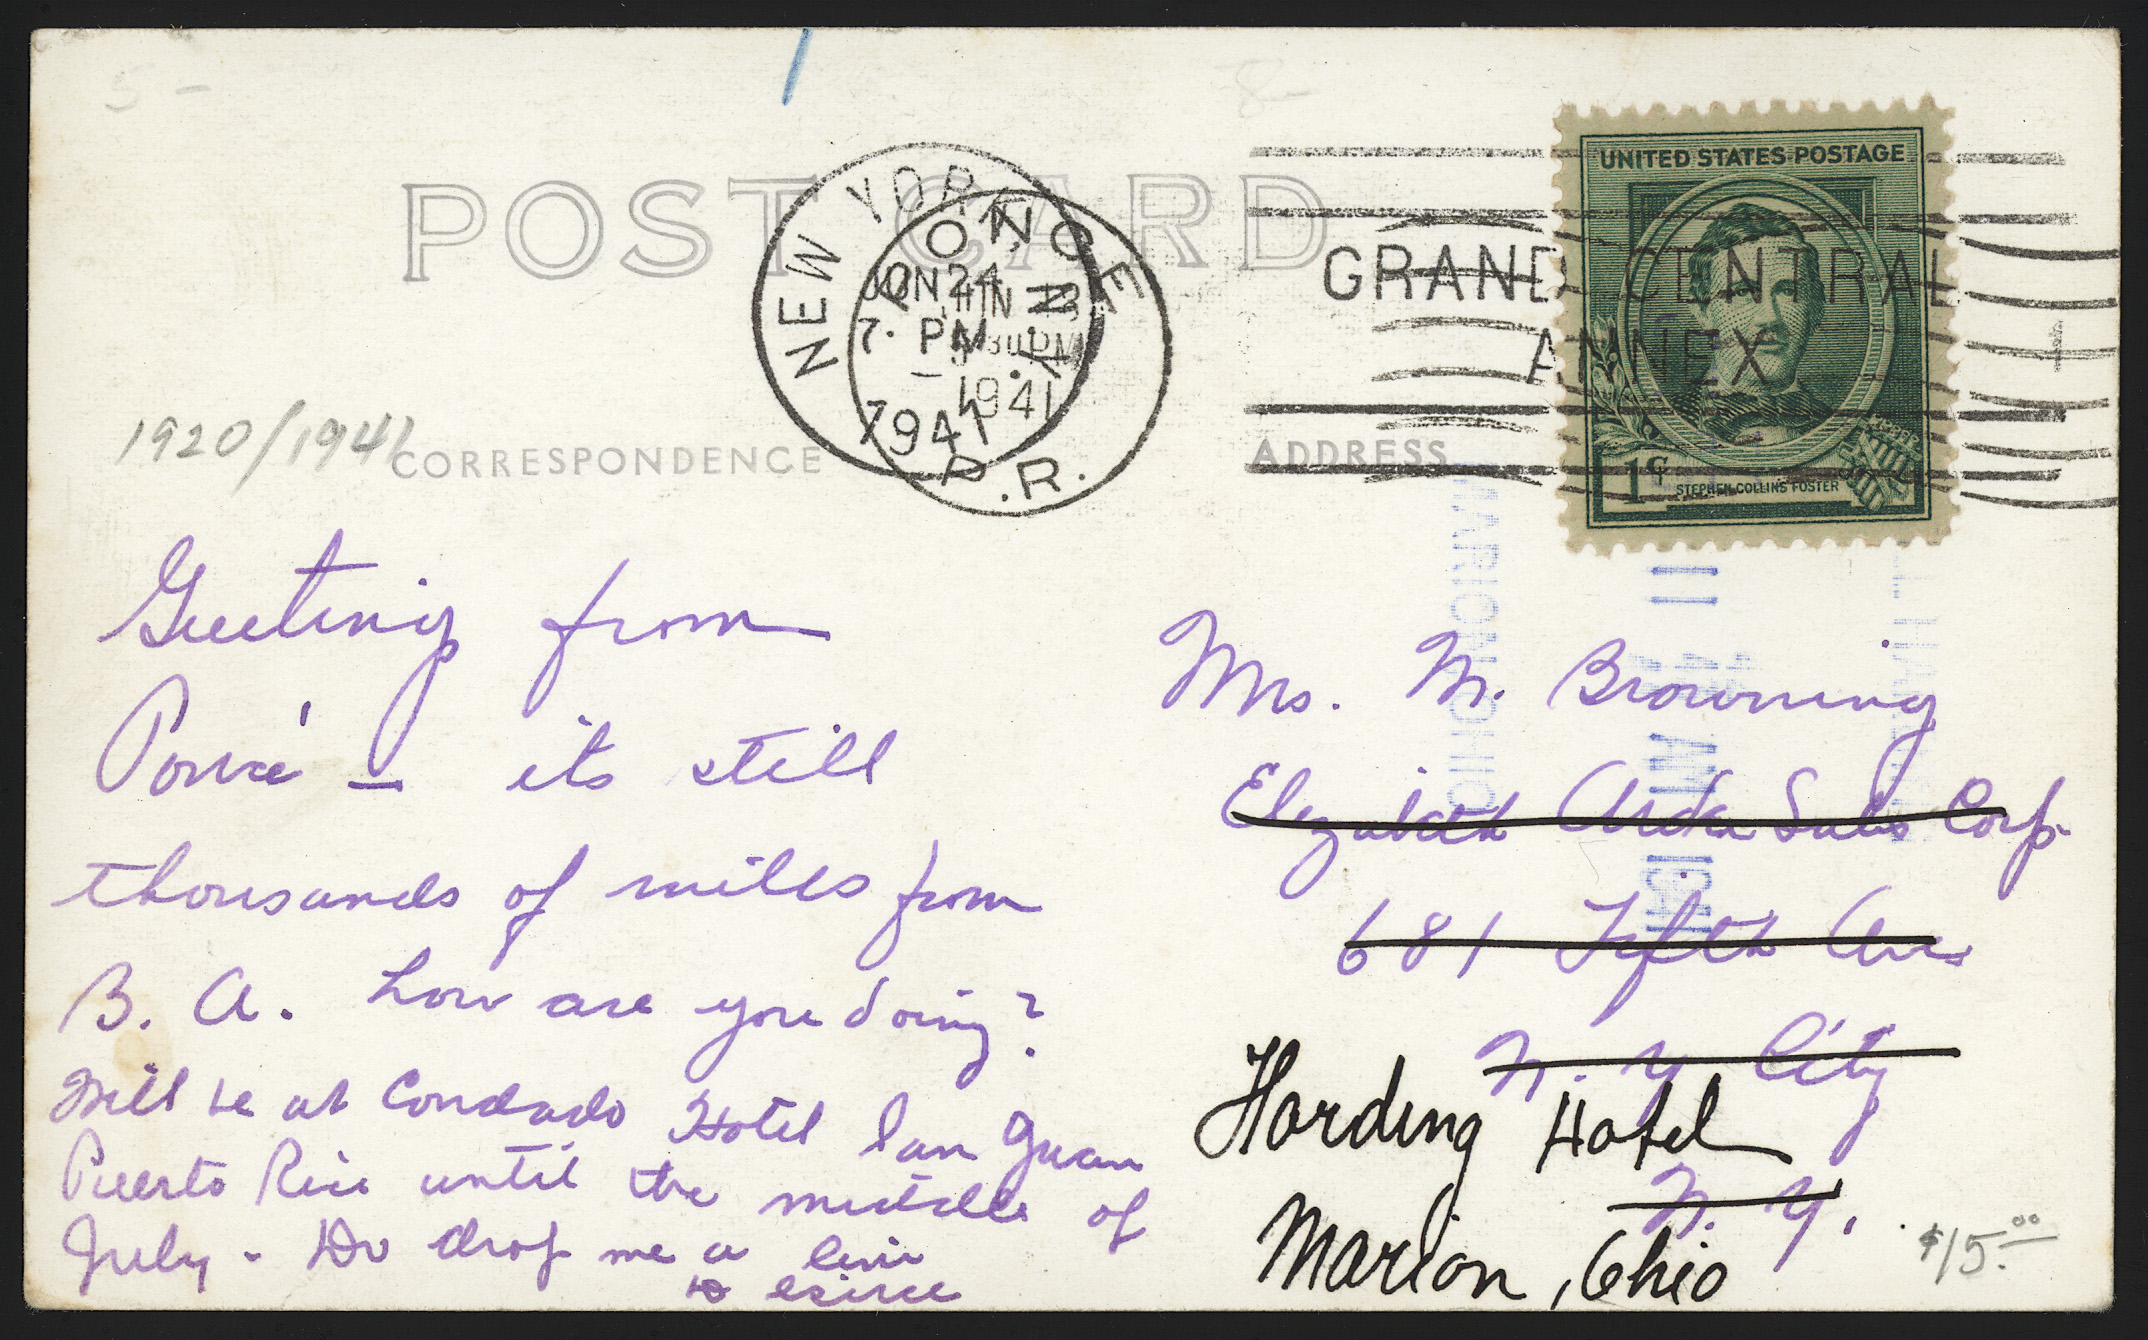 5 –
POST CARD
UNITED STATES POSTAGE
NEW YORK, N.Y.
JUN 24
7 PM
1941
PONCE
JUN
PM
1941
P.R.
GRAND CENTRAL
ANNEX
1
1¢
STEPHEN COLLINS FOSTER
1920/1941
CORRESPONDENCE
ADDRESS
MARION OHIO
Greeting from
Poncé – its still
thousands of miles from
B. A. How are you doing?
Will be at Condado Hotel San Juan
Puerto Rico until the middle of
July – Do drop me a line
Mrs. M. Browning
Elizabeth Arden Sales Corp.
681 Fifth Ave
N. Y City
N. Y.
Harding Hotel
Marion, Ohio
$15.00